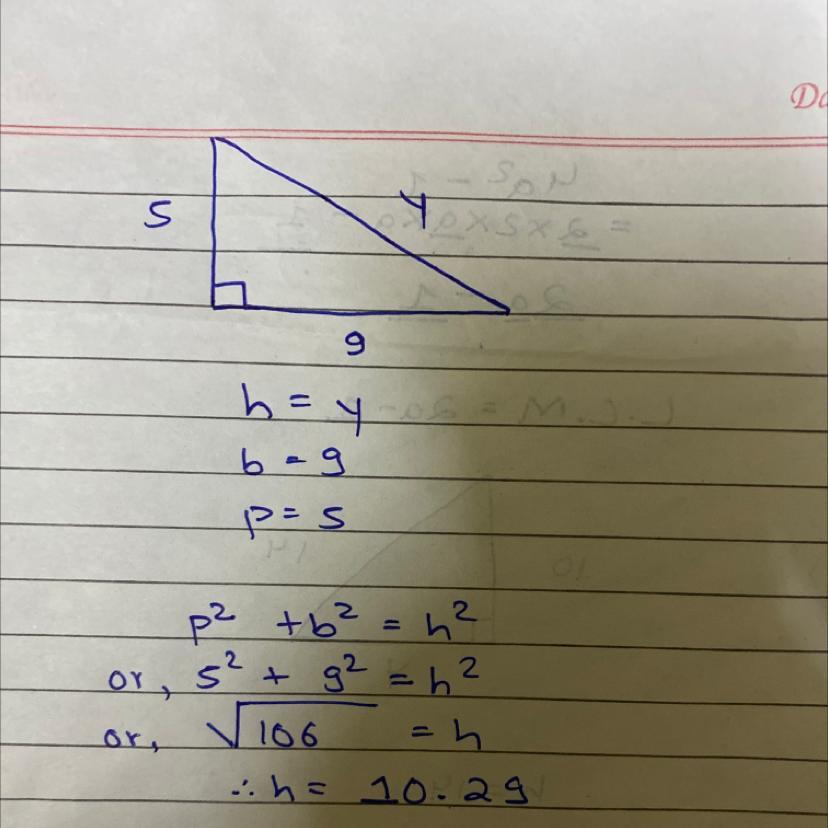 Da
5
y
9
h = y
b = 9
p = 5
p² + b² = h²
or, 5² + 9² = h²
or, √106 = h
∴ h = 10.29